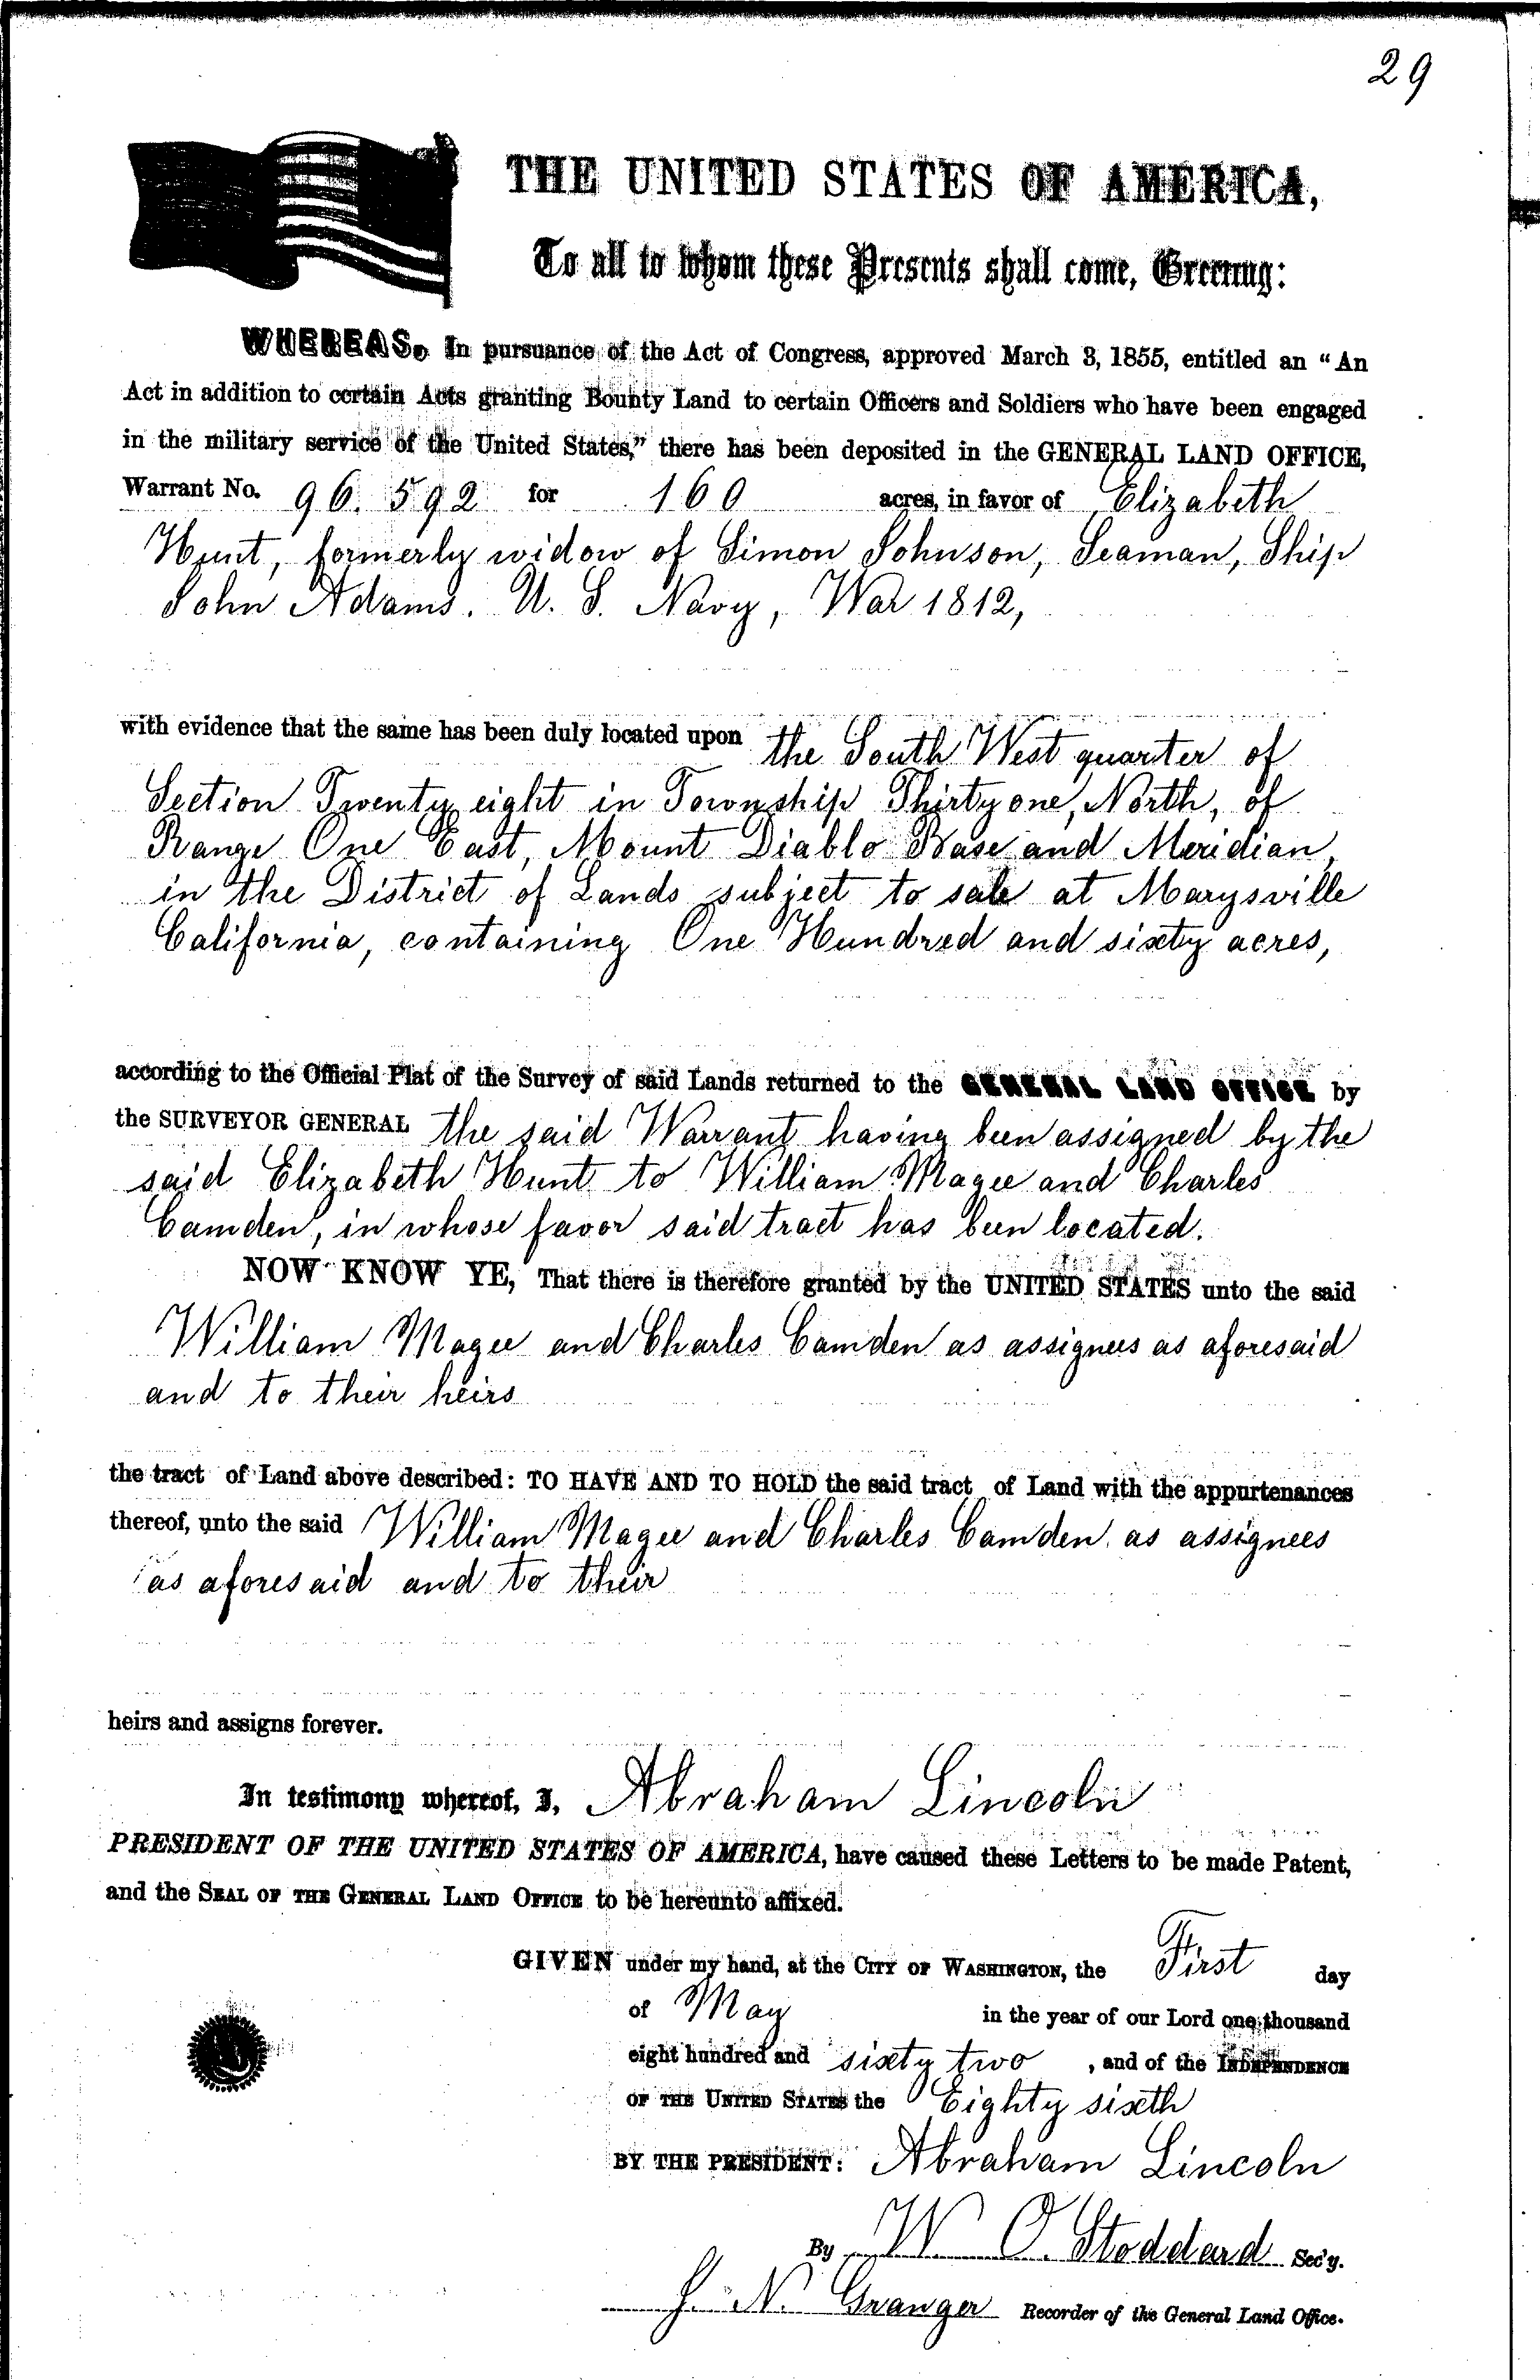 29
THE UNITED STATES OF AMERICA,
To all to whom these Presents shall come, Greeting:
WHEREAS, In pursuance of the Act of Congress, approved March 3, 1855, entitled an "An
Act in addition to certain Acts granting Bounty Land to certain Officers and Soldiers who have been engaged
in the military service of the United States," there has been deposited in the GENERAL LAND OFFICE,
Warrant No. 96.592 for 160 acres, in favor of Elizabeth
Hunt, formerly widow of Simon Johnson, Seaman, Ship
John Adams. U. S. Navy, War 1812,
with evidence that the same has been duly located upon the South West quarter of
Section Twenty eight in Township Thirty one, North, of
Range One East, Mount Diablo Base and Meridian,
in the District of Lands subject to sale at Marysville
California, containing One Hundred and sixty acres,
according to the Official Plat of the Survey of said Lands returned to the GENERAL LAND OFFICE by
the SURVEYOR GENERAL the said Warrant having been assigned by the
said Elizabeth Hunt to William Magee and Charles
Camden, in whose favor said tract has been located.
NOW KNOW YE, That there is therefore granted by the UNITED STATES unto the said
William Magee and Charles Camden as assignees as aforesaid
and to their heirs
the tract of Land above described: TO HAVE AND TO HOLD the said tract of Land with the appurtenances
thereof, unto the said William Magee and Charles Camden as assignees
as aforesaid and to their
heirs and assigns forever.
In testimony whereof, I, Abraham Lincoln
PRESIDENT OF THE UNITED STATES OF AMERICA, have caused these Letters to be made Patent,
and the SEAL OF THE GENERAL LAND OFFICE to be hereunto affixed.
GIVEN under my hand, at the CITY OF WASHINGTON, the First day
of May in the year of our Lord one thousand
eight hundred and sixty two, and of the INDEPENDENCE
OF THE UNITED STATES the Eighty sixth
BY THE PRESIDENT: Abraham Lincoln
By W. O. Stoddard Sec'y.
J. N. Granger Recorder of the General Land Office.